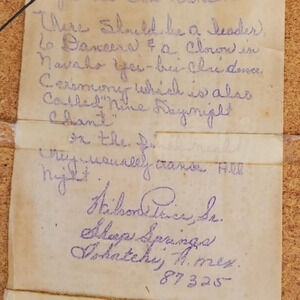 There Should be a leader,
6 Dancers & a Clown in
Navaho Yei-bei-Chi dance
Ceremony which is also
Called "Nine Day night
Chant"
In the
they usually dance All
Night.
Wilson Price, Sr.
Sheep Springs
Tohatchi, N. Mex.
87325